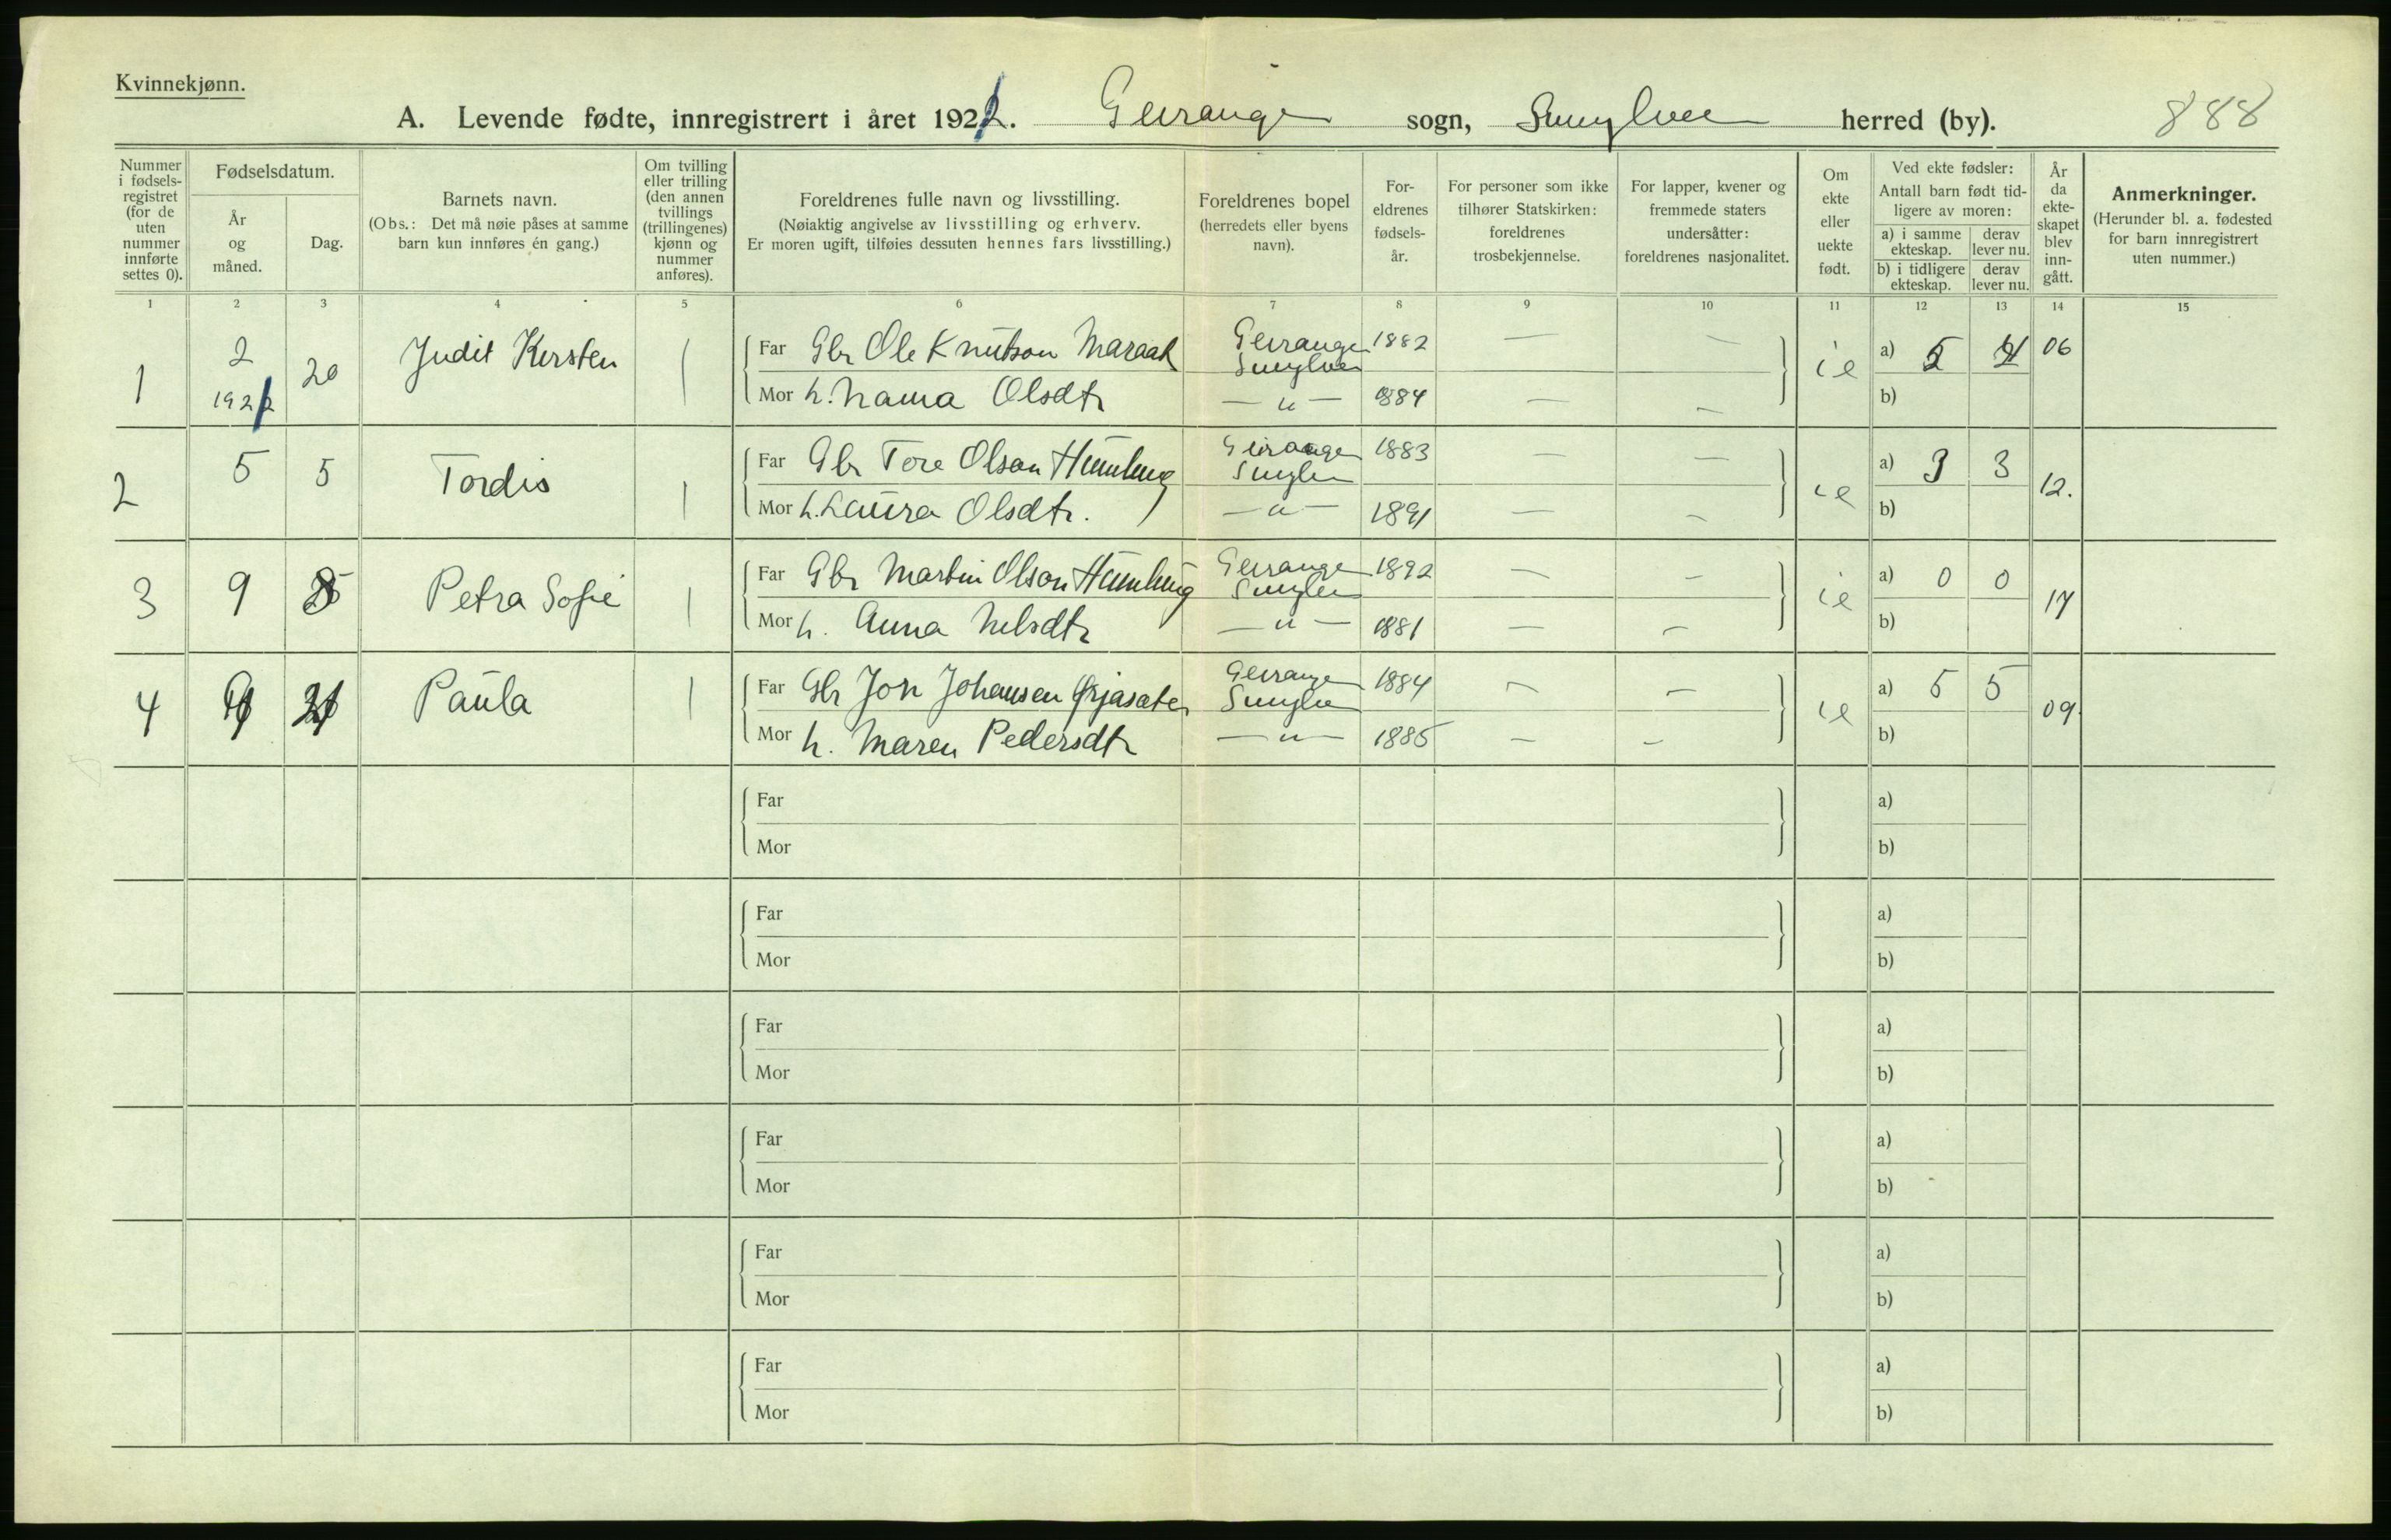 Kvinnekjønn.
A. Levende fødte, innregistrert i året 1922. Geiranger sogn, Sunylven herred (by). 888
Nummer i fødsels-registret (for de uten nummer innførte settes 0).
Fødselsdatum.
År og måned.
Dag.
Barnets navn.
(Obs.: Det må nøie påses at samme barn kun innføres én gang.)
Om tvilling eller trilling (den annen tvillings (trillingenes) kjønn og nummer anføres).
Foreldrenes fulle navn og livsstilling.
(Nøiaktig angivelse av livsstilling og erhverv.
Er moren ugift, tilføies dessuten hennes fars livsstilling.)
Foreldrenes bopel
(herredets eller byens navn).
For-eldrenes fødsels-år.
For personer som ikke tilhører Statskirken: foreldrenes trosbekjennelse.
For lapper, kvener og fremmede staters undersåtter: foreldrenes nasjonalitet.
Om ekte eller uekte født.
Ved ekte fødsler:
Antall barn født tid-ligere av moren:
a) i samme ekteskap. derav lever nu.
b) i tidligere ekteskap. derav lever nu.
År da ekte-skapet blev inn-gått.
Anmerkninger.
(Herunder bl. a. fødested for barn innregistrert uten nummer.)
1 2 3 4 5 6 7 8 9 10 11 12 13 14 15
1 2 1922 20 Judit Kirsten 1
Far Gbr Ole Knutson Maraak Geiranger Sunylven 1882 — — ie a) 5 4 06
Mor h. Nama Olsdtr — " — 1884 — — b)
2 5 5 Tordis 1
Far Gbr Tore Olson Humlung Geiranger Sunylven 1883 — — ie a) 3 3 12.
Mor h. Laura Olsdtr. — " — 1891 — — b)
3 9 Petra Sofie 1
Far Gbr Martin Olson Humlung Geiranger Sunylven 1892 — — ie a) 0 0 17
Mor h. Anna Nilsdtr — " — 1881 — — b)
4 Paula 1
Far Gbr Jon Johansen Ørjasæter Geiranger Sunylven 1884 — — ie a) 5 5 09.
Mor h. Maren Pedersdtr — " — 1885 — — b)
Far a)
Mor b)
Far a)
Mor b)
Far a)
Mor b)
Far a)
Mor b)
Far a)
Mor b)
Far a)
Mor b)